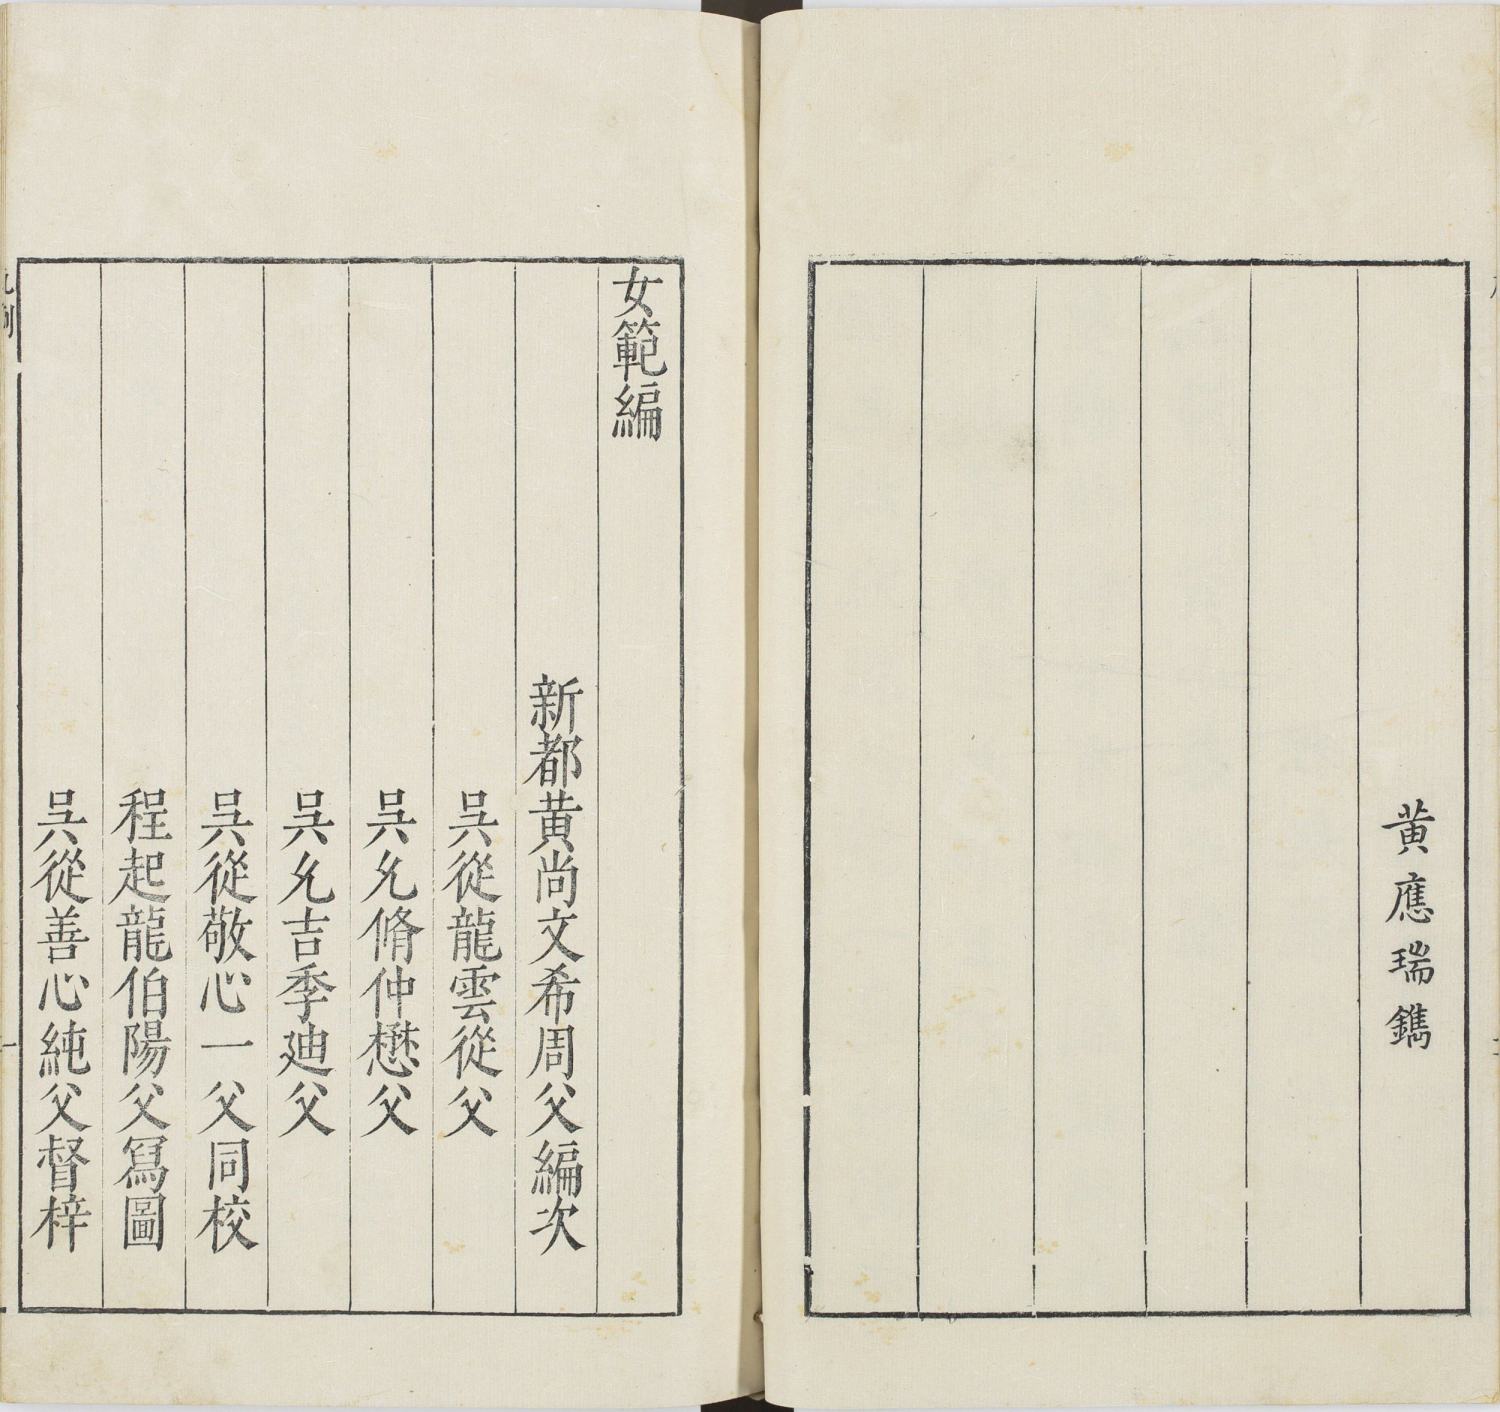 黄應瑞鐫
女範編
新都黄尚文希周父編次
吳從龍雲從父
吳允脩仲懋父
吳允吉季迪父
吳從敬心一父同校
程起龍伯陽父寫圖
吳從善心純父督梓
凡例
一